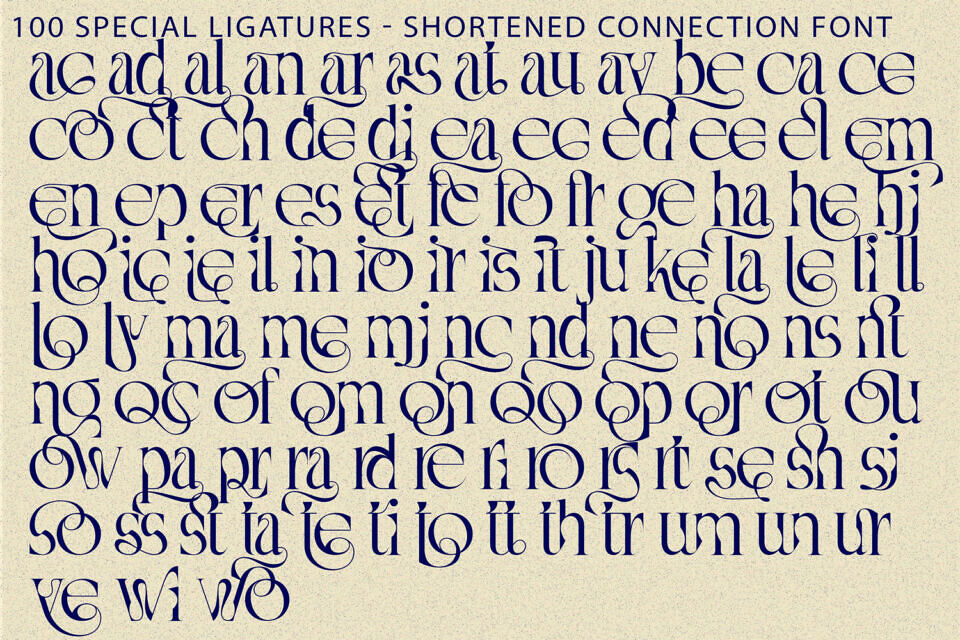 100 SPECIAL LIGATURES - SHORTENED CONNECTION FONT
ac ad al an ar as at au av be ca ce
co ct ch de dj ea ec ed ee el em
en ep er es et fe fo fr ge ha he hj
ho ic ie il in io ir is it ju ke la le li ll
lo ly ma me mj nc nd ne no ns nt
ng oc of om on oo op or ot ou
ow pa pr ra rd re ri ro rs rt se sh sj
so ss st ta te ti to tt th tr um un ur
ve wi wo